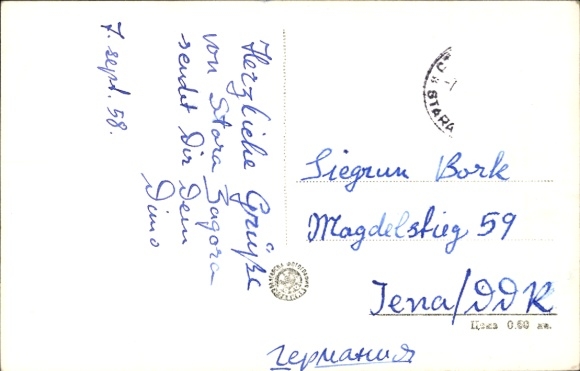 7. sept. 58.
Herzliche Grüße
von Stara Zagora
sendet Dir Dein
Dimo
STARA
Siegrun Bork
Magdelstieg 59
Jena/DDR
Цена 0.60 лв.
Германия